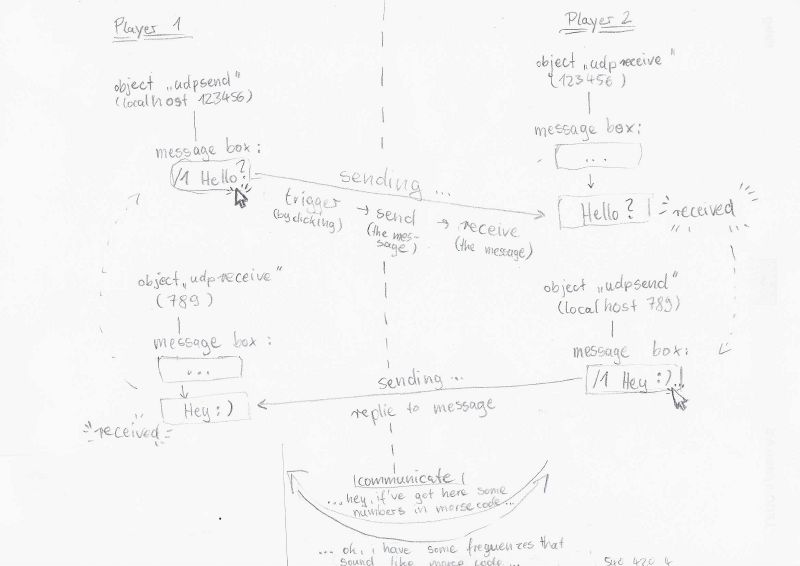 Player 1
object „udpsend"
(localhost 123456)
message box:
/1 Hello?
Player 2
object „udpreceive"
(123456)
message box:
...
Hello?
received
sending ...
trigger
(by clicking)
→ send
(the mes-
sage)
→ receive
(the message)
object „udpreceive"
(789)
message box:
...
Hey:)
received
object „udpsend"
(localhost 789)
message box:
/1 Hey :)
sending ...
replie to message
communicate
...hey, if've got here some
numbers in morsecode...
... oh, i have some frequenzes that
sound like morse code...